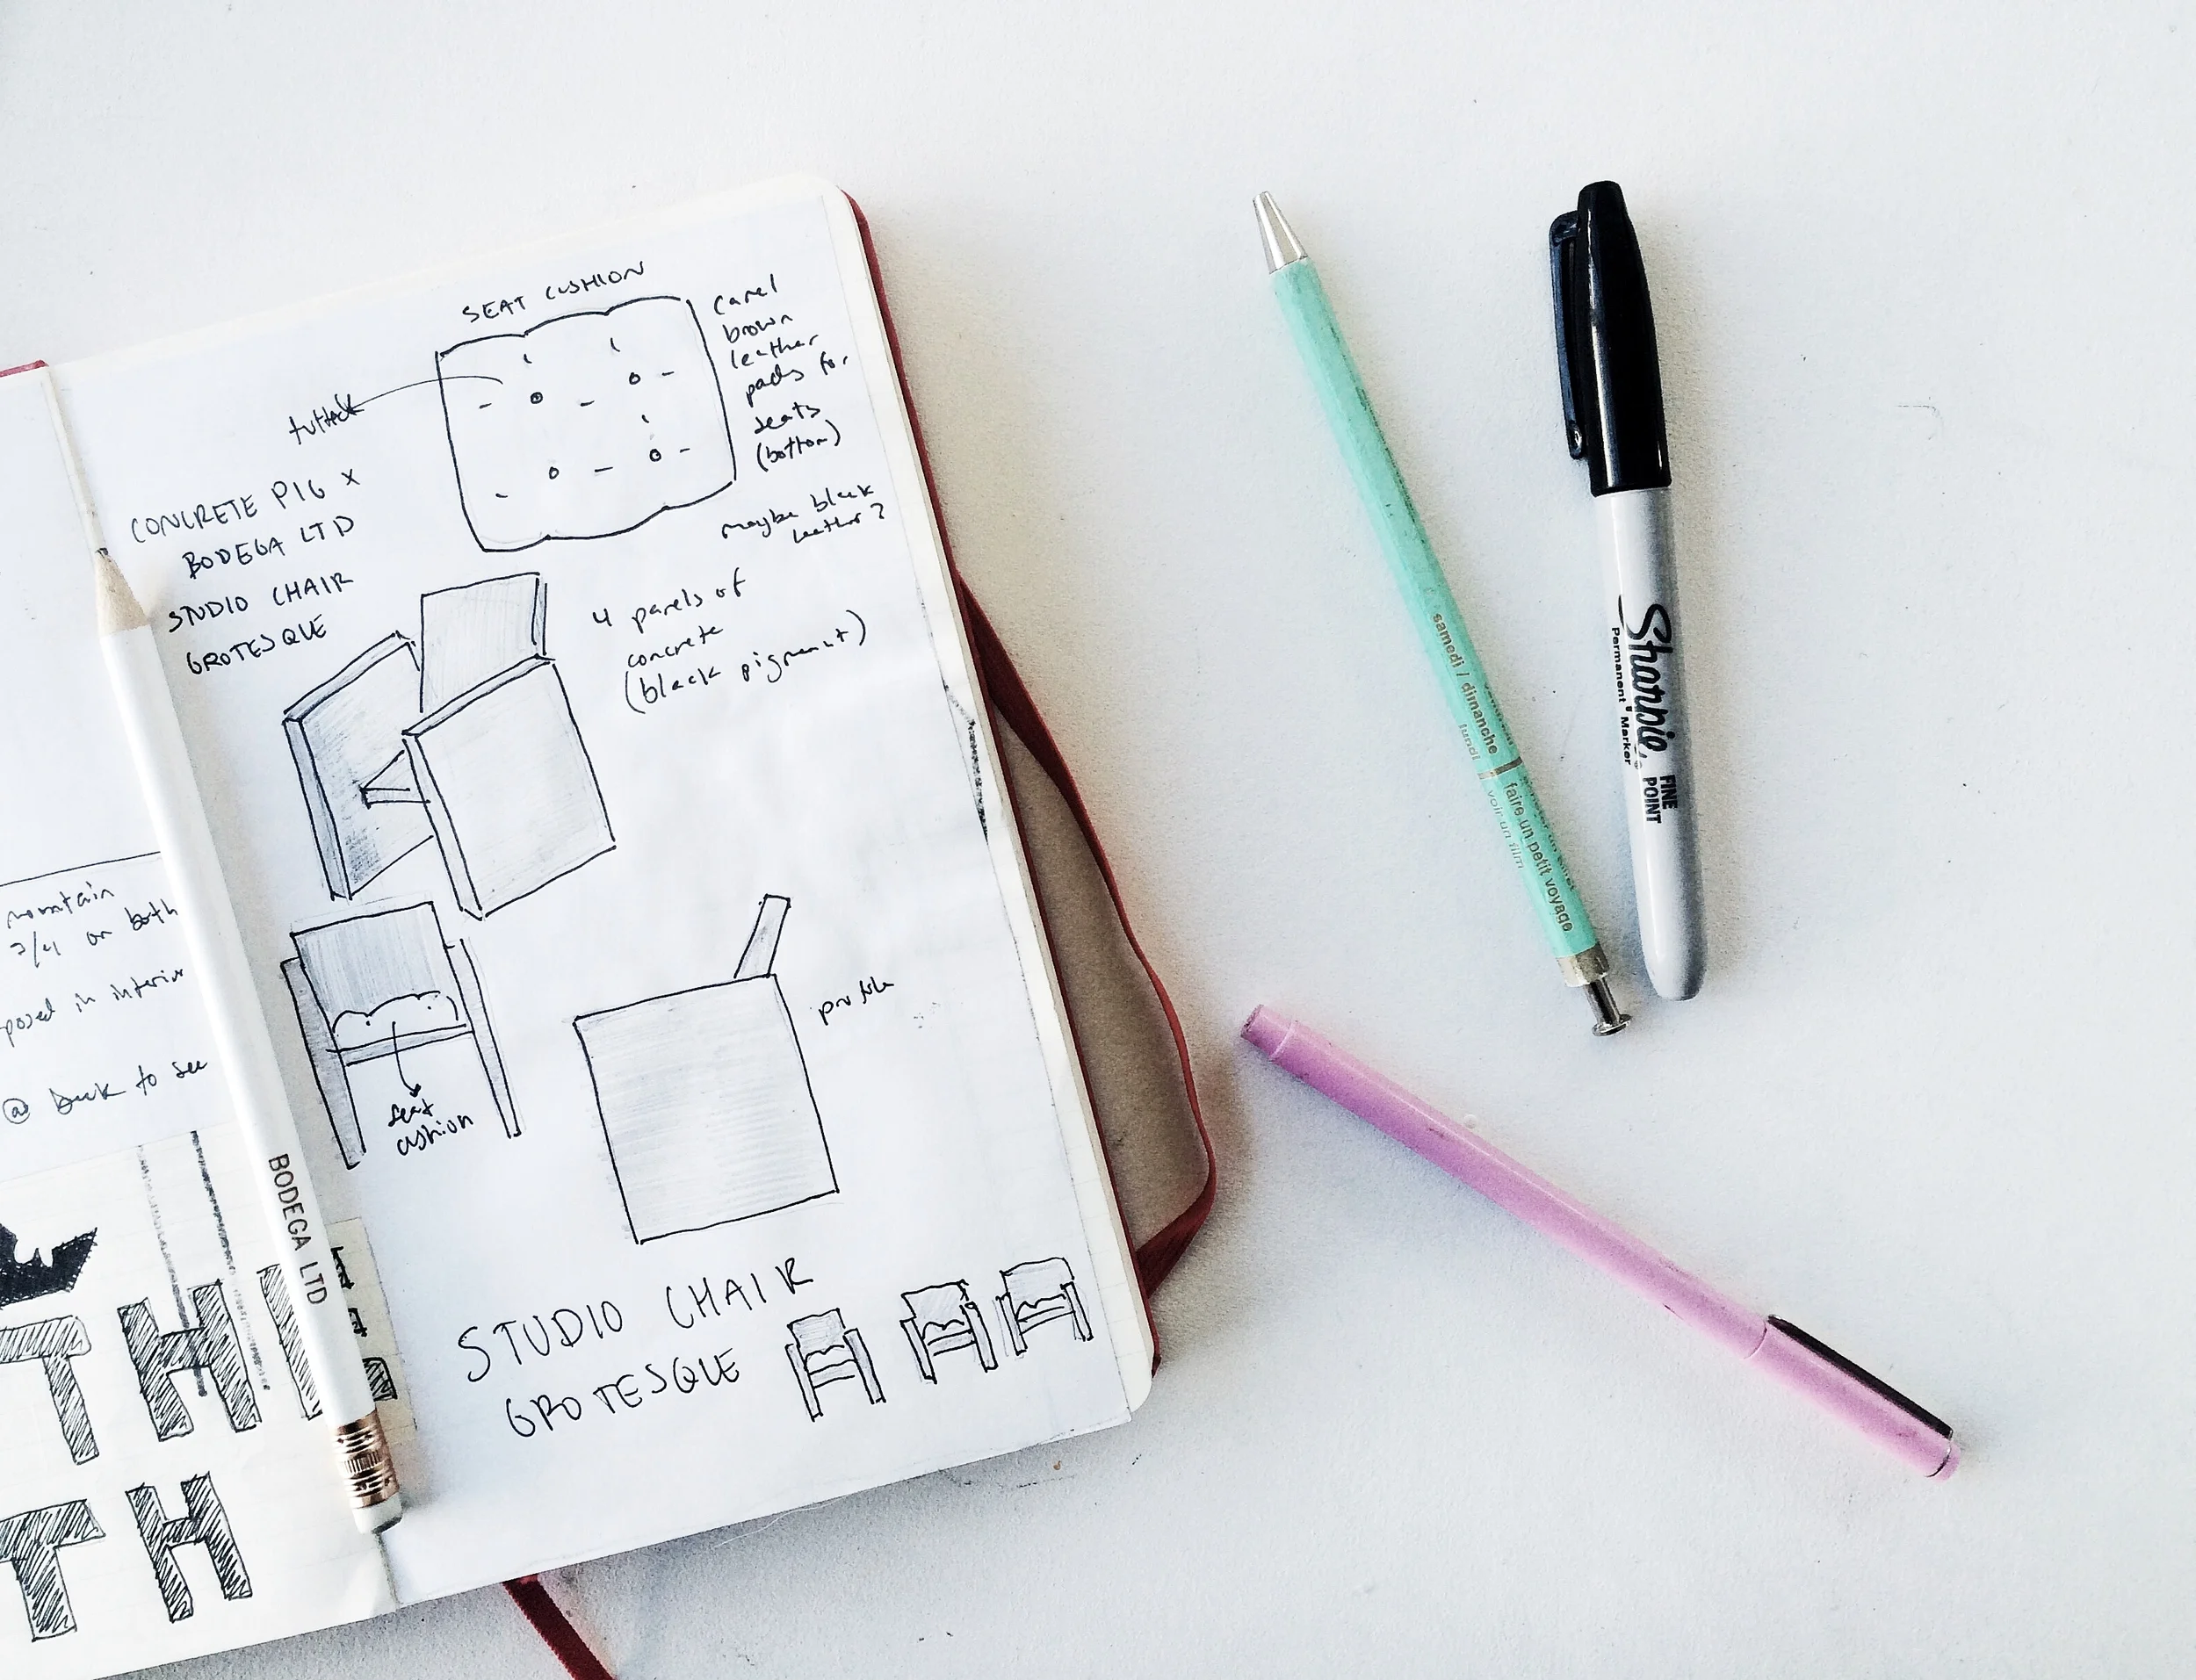 SEAT CUSHION
camel
brown
leather
pads for
seats
(bottom)
maybe black
leather?
CONCRETE PIG X
BODEGA LTD
STUDIO CHAIR
GROTESQUE
4 panels of
concrete
(black pigment)
seat
cushion
profile
STUDIO CHAIR
GROTESQUE
mountain
3/4 on both
posed in interior
@ to see
TH
TH
BODEGA LTD
samedi / dimanche
faire un petit voyage
lundi
voir un film
Sharpie
Permanent Marker
FINE
POINT